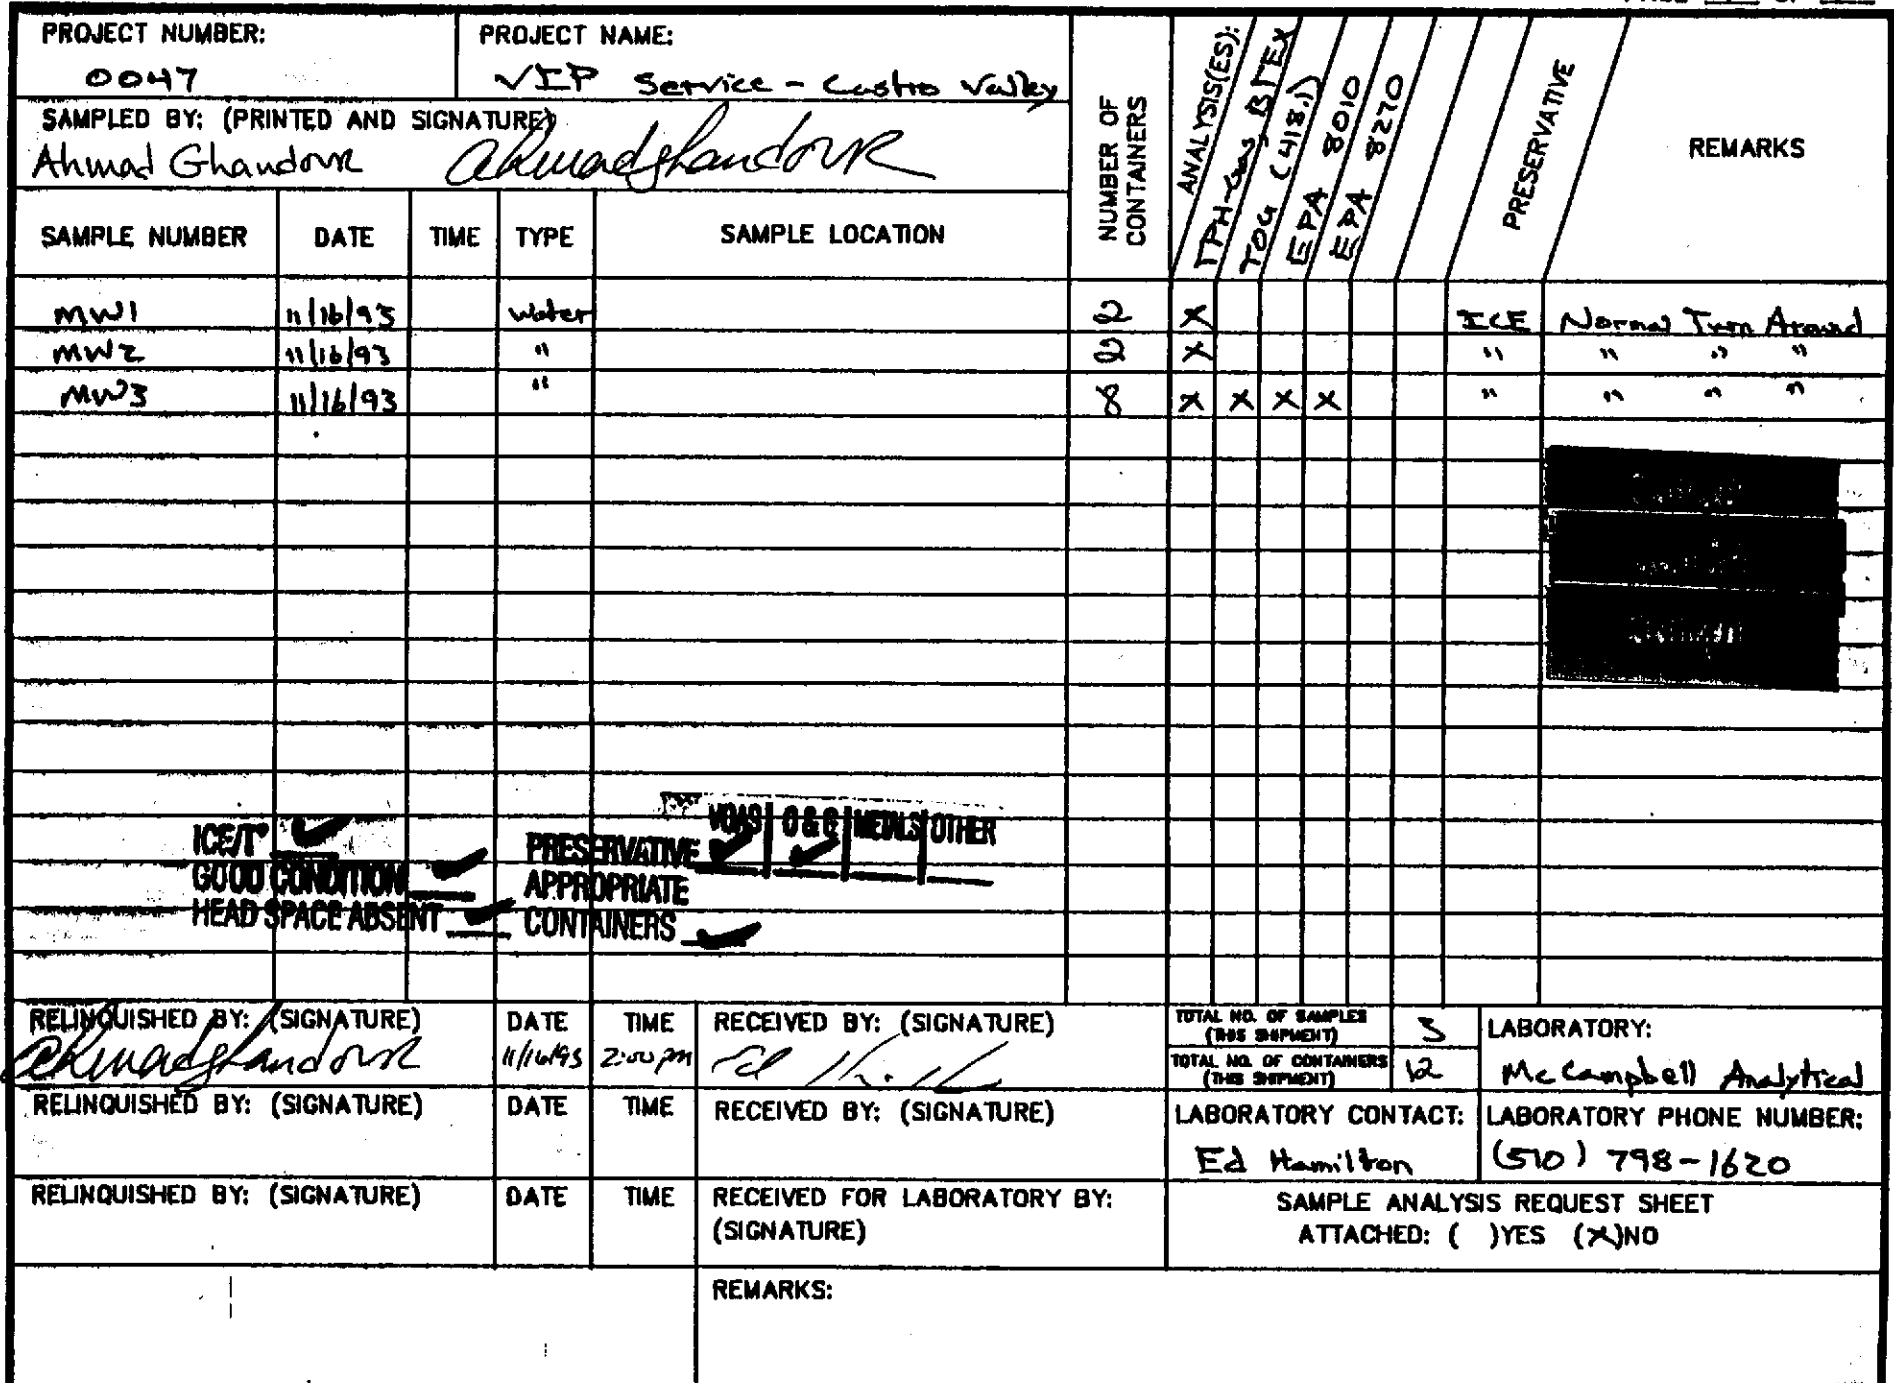 PROJECT NUMBER:
0047
PROJECT NAME:
VIP Service - Castro Valley
SAMPLED BY: (PRINTED AND SIGNATURE)
Ahmad Ghandour ahmadghandour
SAMPLE NUMBER DATE TIME TYPE SAMPLE LOCATION
NUMBER OF
CONTAINERS
ANALYSIS(ES):
TPH-Gas, BTEX
TOG (418.1)
EPA 8010
EPA 8270
PRESERVATIVE
REMARKS
MW1 11/16/93 Water 2 X ICE Normal Turn Around
MW2 11/16/93 " 2 X " " " "
MW3 11/16/93 " 8 X X X X " " " "
ICE/T° ✓
GOOD CONDITION ✓
HEAD SPACE ABSENT ✓
VOAS | O & G | METALS | OTHER
PRESERVATIVE ✓ ✓
APPROPRIATE
CONTAINERS ✓
RELINQUISHED BY: (SIGNATURE) DATE TIME RECEIVED BY: (SIGNATURE)
ahmadghandour 11/16/93 2:00 pm
TOTAL NO. OF SAMPLES
(THIS SHIPMENT) 3
TOTAL NO. OF CONTAINERS
(THIS SHIPMENT) 12
LABORATORY:
McCampbell Analytical
RELINQUISHED BY: (SIGNATURE) DATE TIME RECEIVED BY: (SIGNATURE)
LABORATORY CONTACT:
Ed Hamilton
LABORATORY PHONE NUMBER:
(510) 798-1620
RELINQUISHED BY: (SIGNATURE) DATE TIME RECEIVED FOR LABORATORY BY:
(SIGNATURE)
SAMPLE ANALYSIS REQUEST SHEET
ATTACHED: ( )YES (X)NO
REMARKS: